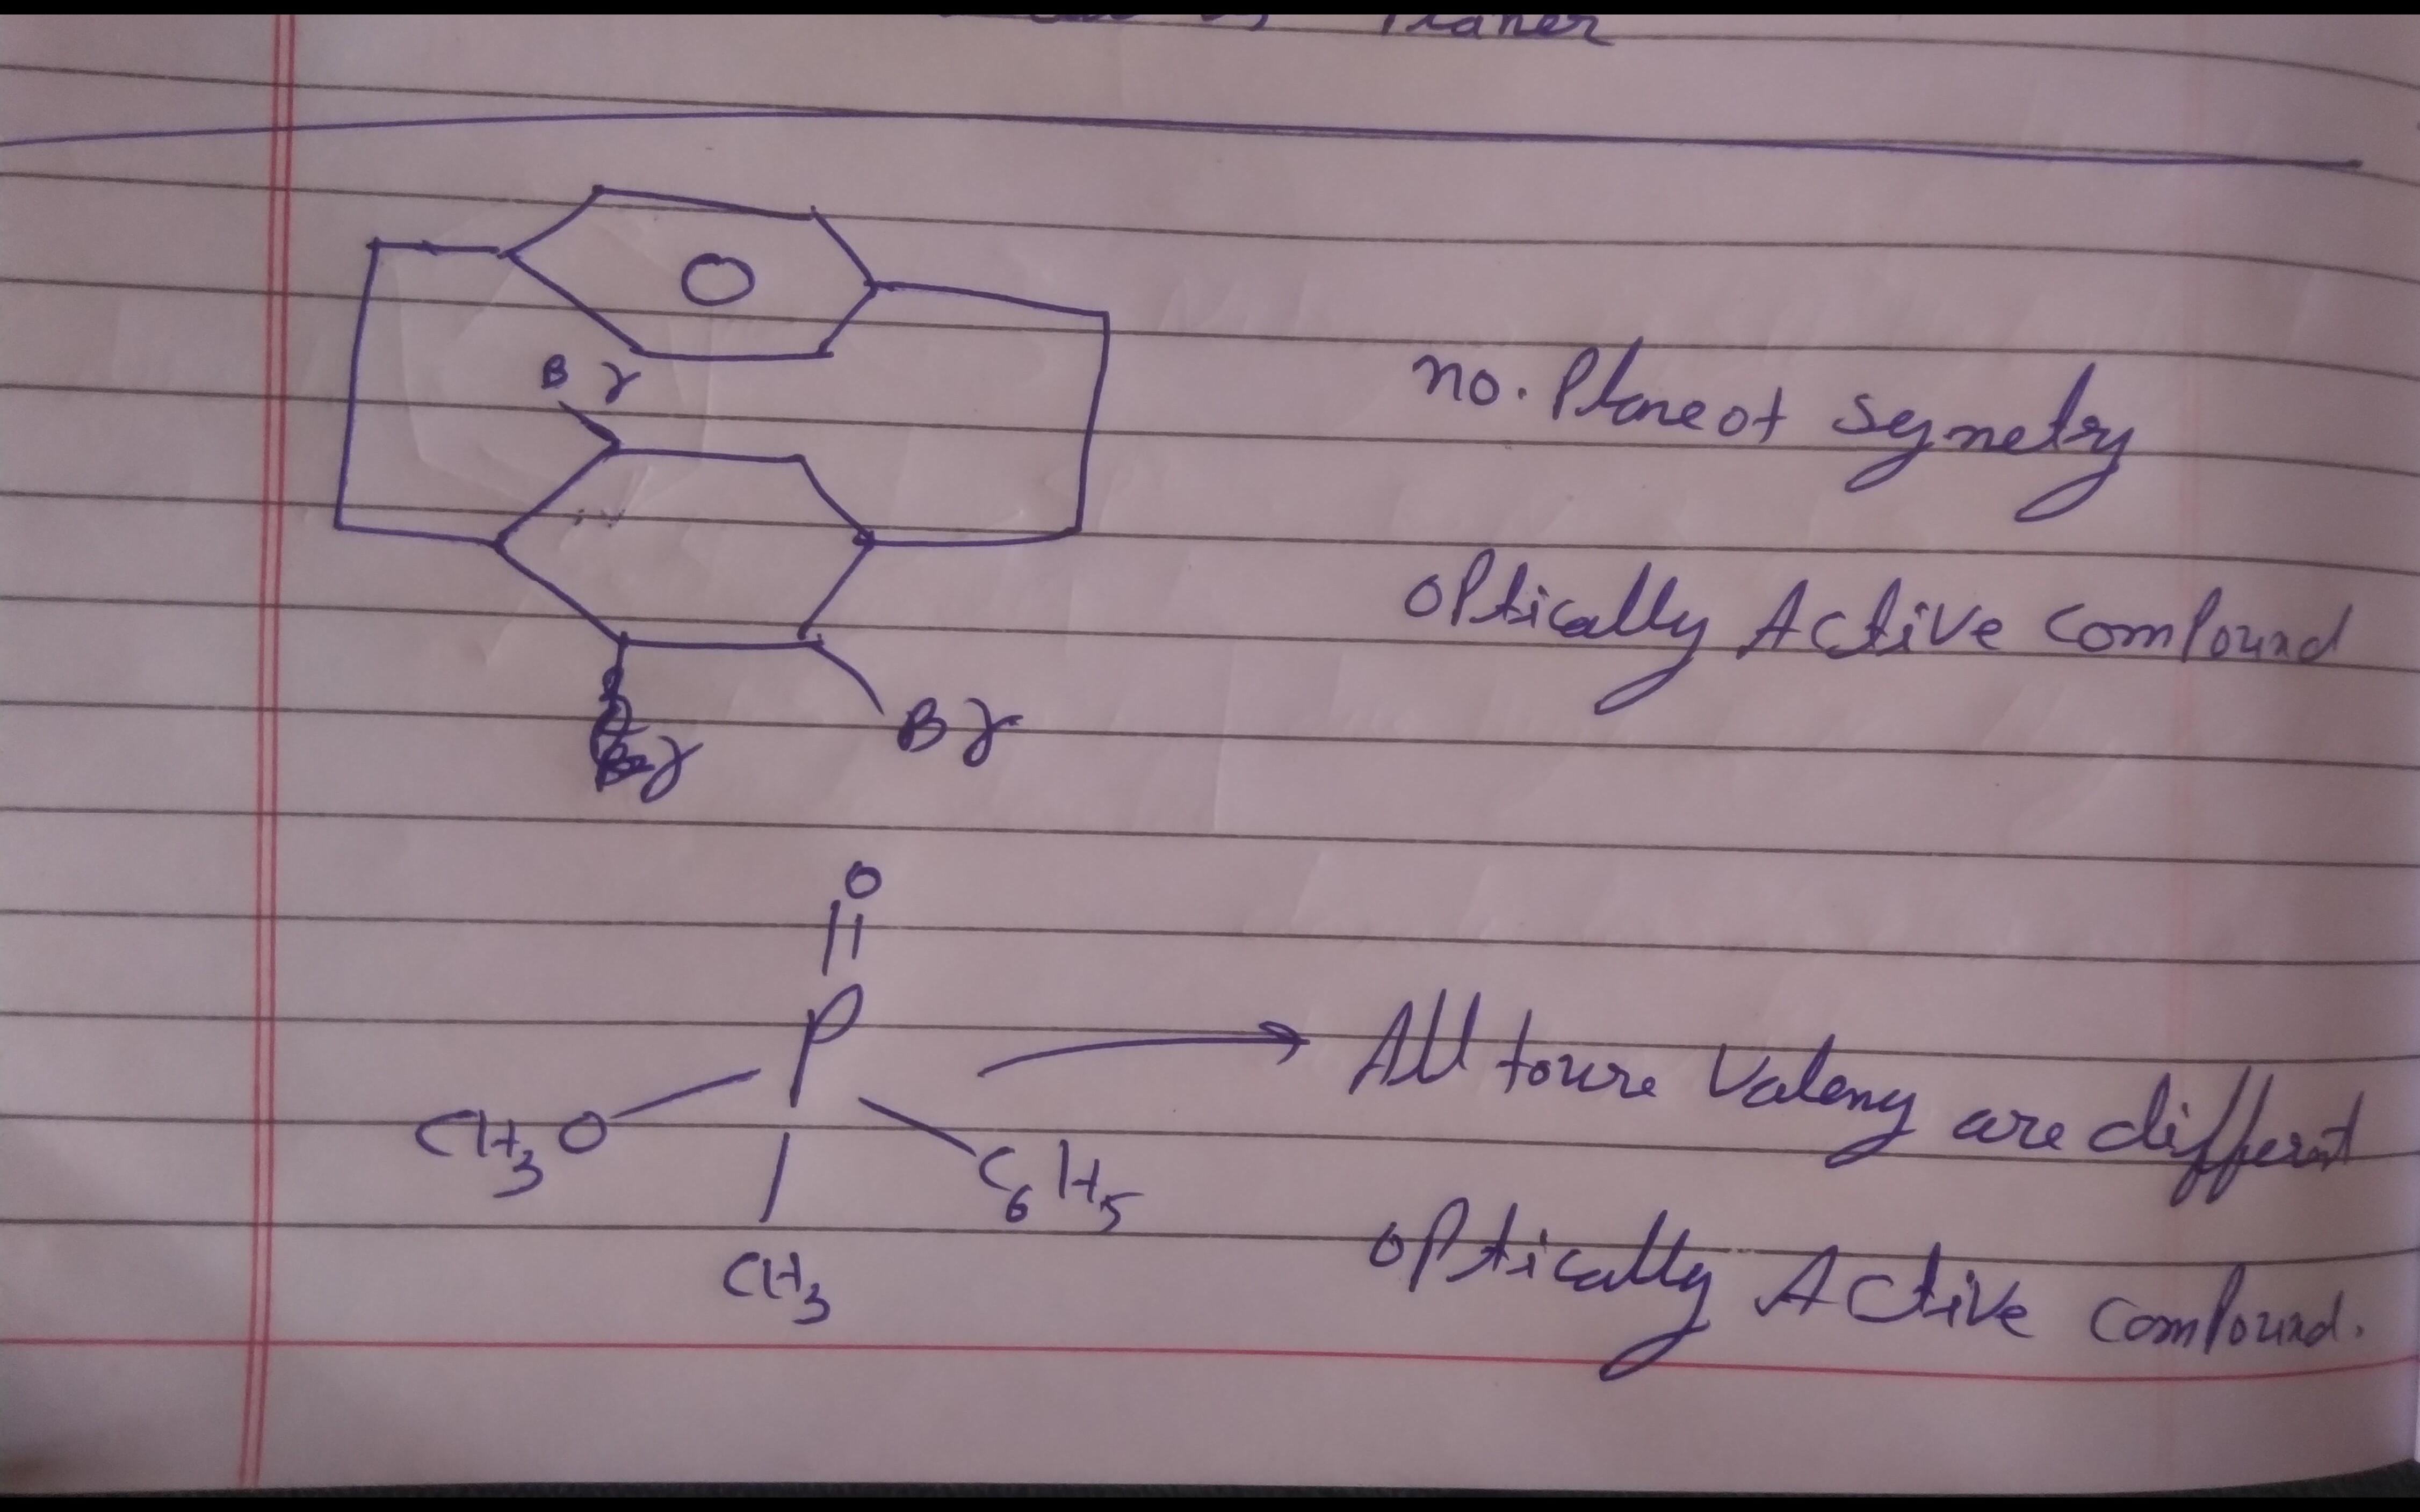 Planer
O
Br
no. Plane of symetry
Optically Active compound
Br
Br
O
P
CH3O
C6H5
CH3
All foure Valeny are different
Optically Active compound.